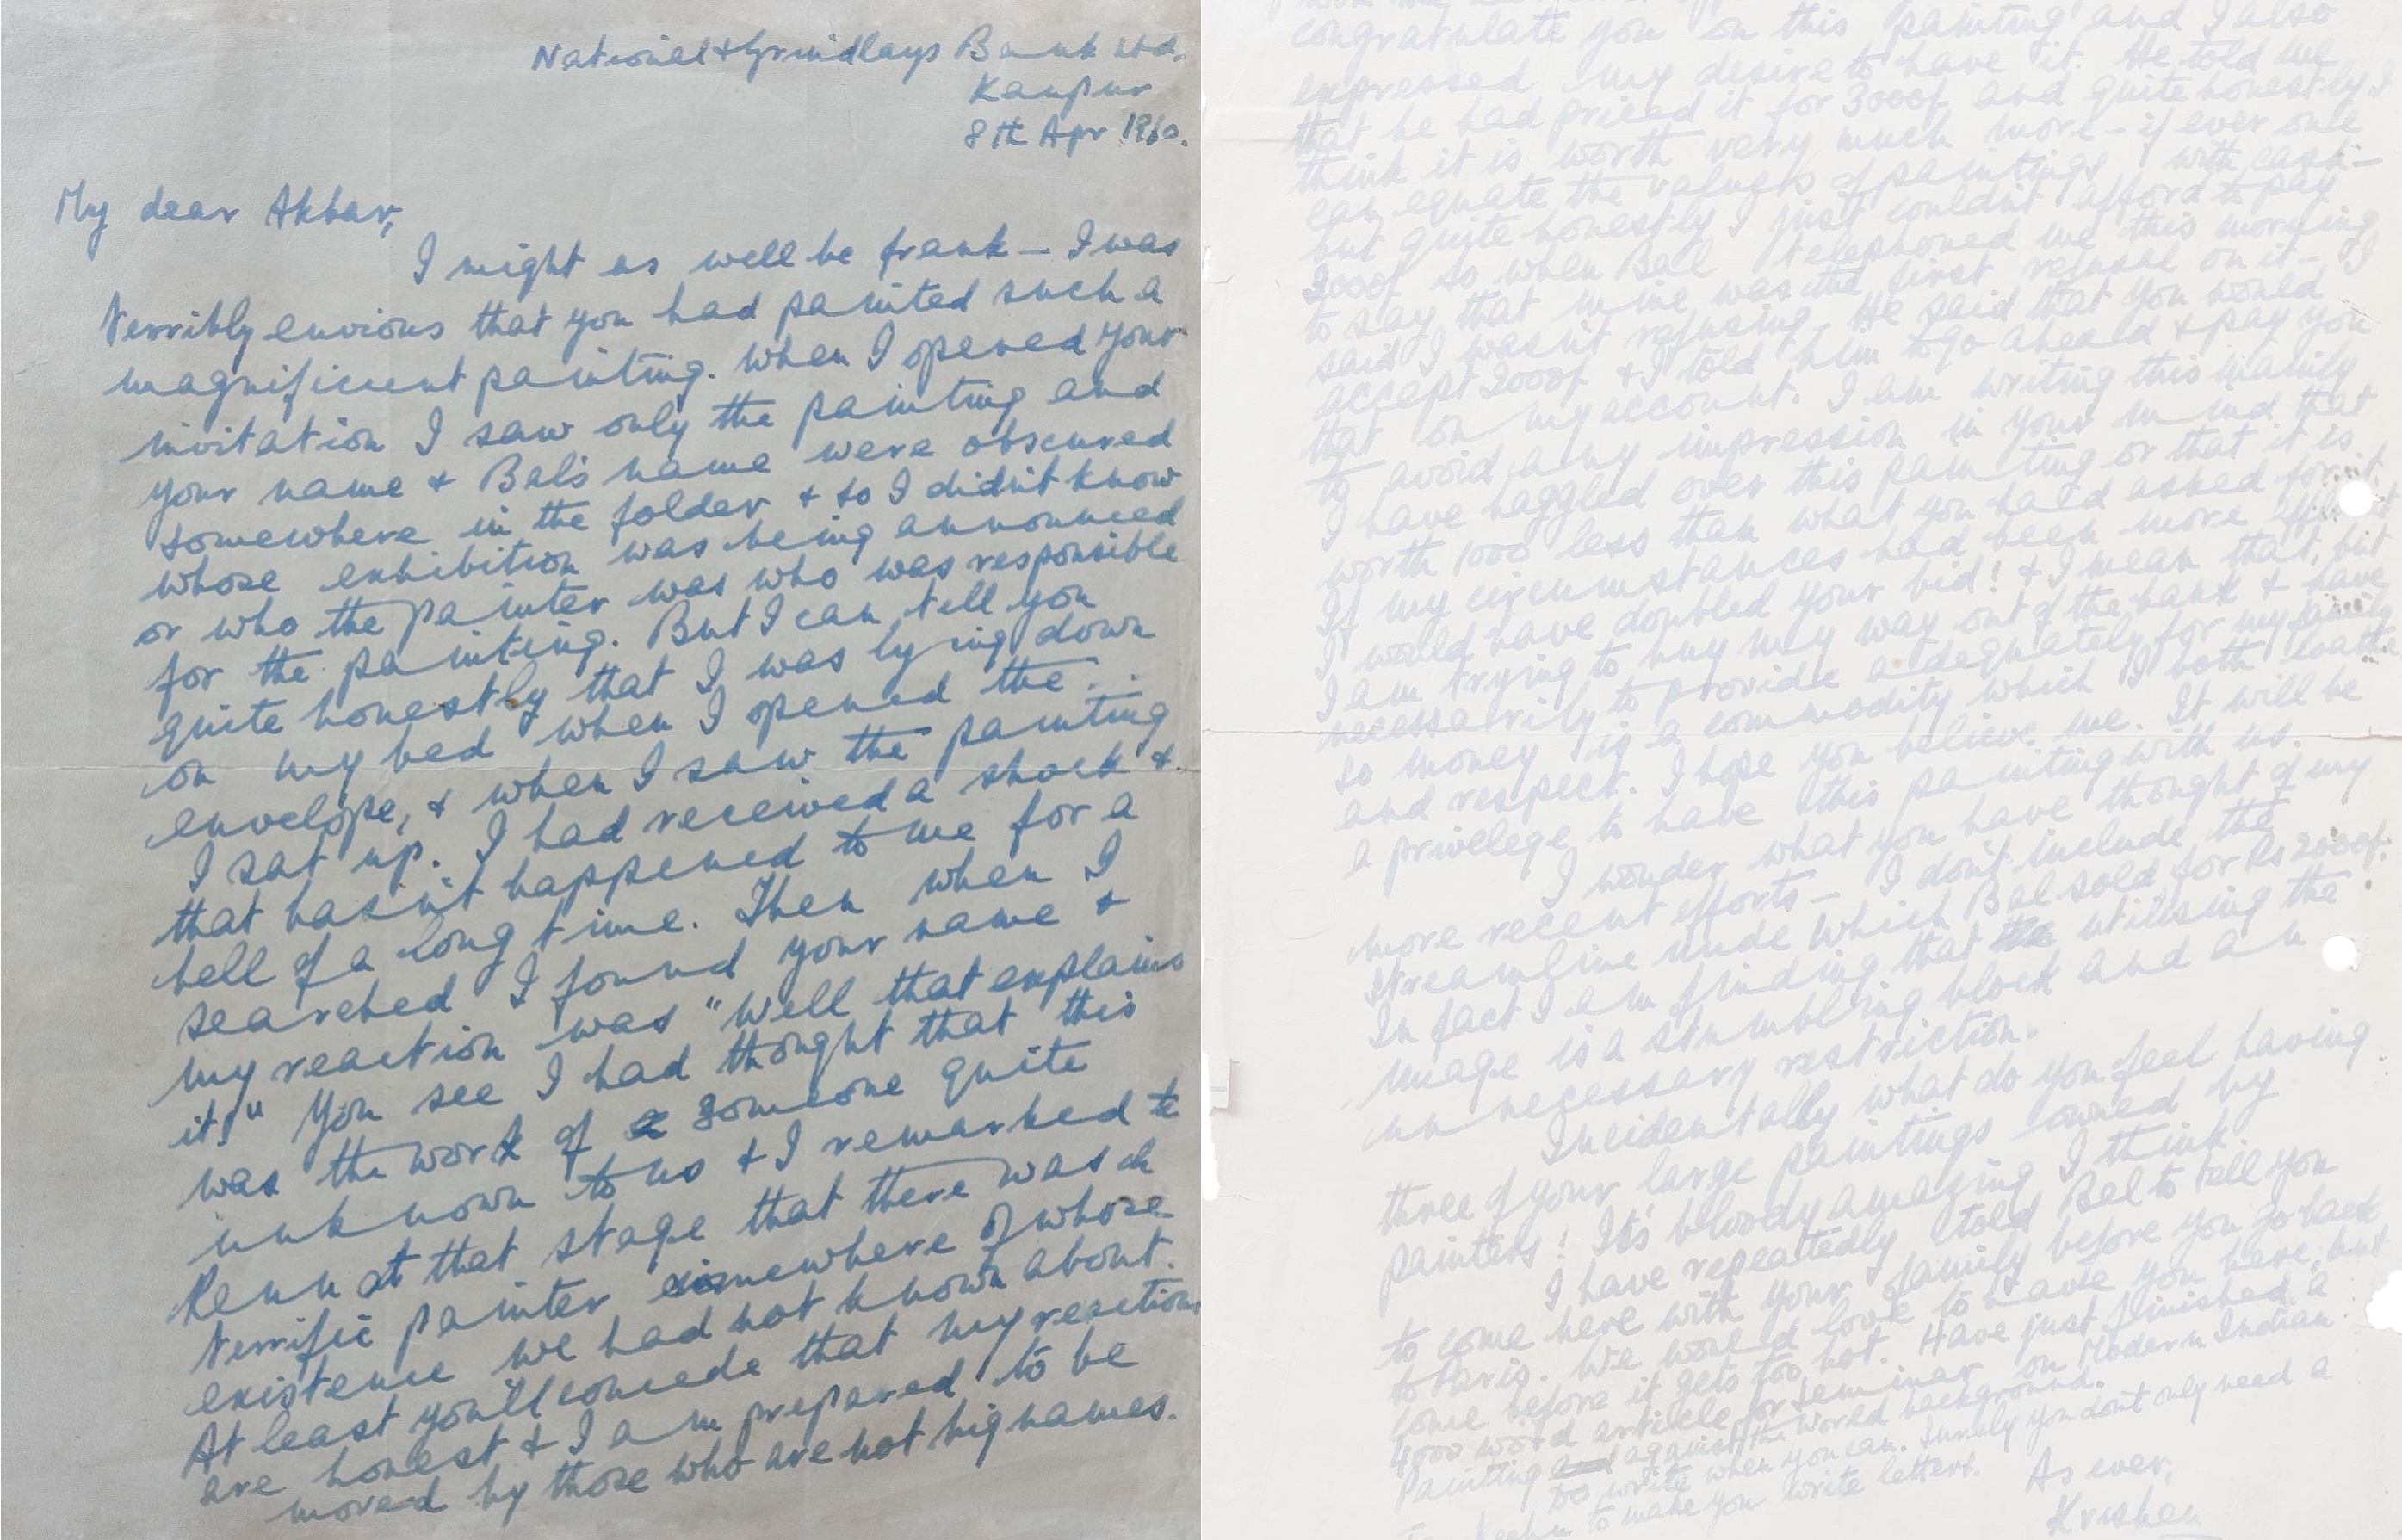 National & Grindlays Bank Ltd.
Kanpur
8th Apr 1960.
My dear Akbar,
I might as well be frank — I was
terribly envious that you had painted such a
magnificient painting. When I opened your
invitation I saw only the painting and
your name & Bal's name were obscured
somewhere in the folder & so I didn't know
whose exhibition was being announced
or who the painter was who was responsible
for the painting. But I can tell you
quite honestly that I was lying down
on my bed when I opened the
envelope, & when I saw the painting
I sat up. I had received a shock &
that hasn't happened to me for a
hell of a long time. Then when I
searched I found your name &
my reaction was "Well that explains
it!" You see I had thought that this
was the work of a someone quite
unknown to us & I remarked to
Renu at that stage that there was a
terrific painter somewhere of whose
existence we had not known about.
At least you'll concede that my reactions
are honest & I am prepared to be
moved by those who are not big names.
congratulate you on this painting and I also
expressed my desire to have it. He told me
that he had priced it for 3000/- and quite honestly I
think it is worth very much more — if ever one
can equate the values of paintings with cash —
but quite honestly I just couldn't afford to pay
3000/- so when Bal telephoned me this morning
to say that mine was the first refusal on it — I
said I wasn't refusing. He said that you would
accept 2000/- & I told him to go ahead & pay you
that on my account. I am writing this mainly
to avoid any impression in your mind that
I have haggled over this painting or that it is
worth 1000 less than what you had asked for it.
If my circumstances had been more affluent
I would have doubled your bid! & I mean that, but
I am trying to buy my way out of the bank & have
necessarily to provide adequately for my family
so money is a commodity which I both loathe
and respect. I hope you believe me. It will be
a privilege to have this painting with us.
I wonder what you have thought of my
more recent efforts — I don't include the
Streamline nude which Bal sold for Rs 2000/-.
In fact I am finding that the utilising the
image is a stumbling block and an
unnecessary restriction.
Incidentally what do you feel having
three of your large paintings owned by
painters! It's bloody amazing I think.
I have repeatedly told Bal to tell you
to come here with your family before you go back
to Paris. We would love to have you here, but
come before it gets too hot. Have just finished a
4000 word article for Seminar on Modern Indian
Painting and against the world background.
Do write when you can. Surely you don't only need a
to make you write letters.
As ever,
Krishen